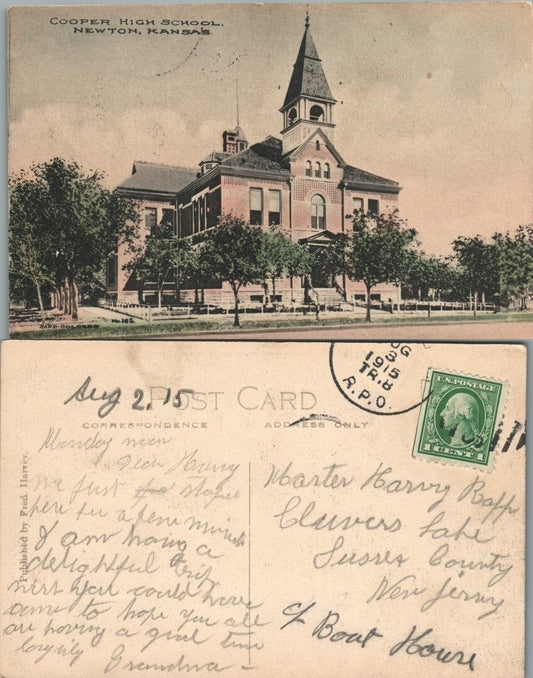 COOPER HIGH SCHOOL.
NEWTON, KANSAS.
HAND COLORED No. 165
Aug 2, 15
POST CARD
CORRESPONDENCE
ADDRESS ONLY
UG
3
1915
TR.8
R.P.O.
U.S. POSTAGE
1 CENT 1
Published by Fred Harvey.
Monday morn
Dear Harvy
We just
here for a few minuts
I am haveing a
delightful Trip
wish you could have
came to hope you all
are having a good time
lovingly Grandma -
Master Harvy Rapp
Cluvers Lake
Sussex County
New Jersy
c/o Boat House